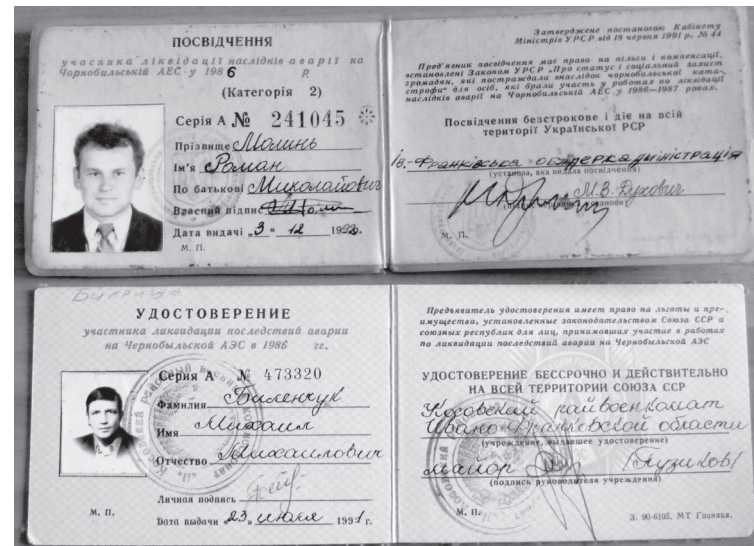 ПОСВІДЧЕННЯ
учасника ліквідації наслідків аварії на
Чорнобильській АЕС у 1986 р
(Категорія 2)
Серія А № 241045
Прізвище Молинь
Ім'я Роман
По батькові Миколайович
Власний підпис
Дата видачі „3" 12 1992 р.
М. П.
Затверджене постановою Кабінету
Міністрів УРСР від 18 червня 1991 р. № 44
Пред'явник посвідчення має право на пільги і компенсації,
встановлені Законом УРСР „Про статус і соціальний захист
громадян, які постраждали внаслідок чорнобильської ката-
строфи" для осіб, які брали участь у роботах по ліквідації
наслідків аварії на Чорнобильській АЕС у 1986—1987 роках.
Посвідчення безстрокове і діє на всій
території Української РСР
Ів.-Франківська облдержадміністрація
(установа, яка видала посвідчення)
М.В. Дукович
М. П.
УДОСТОВЕРЕНИЕ
участника ликвидации последствий аварии
на Чернобыльской АЭС в 1986 гг.
Серия А № 473320
Фамилия Биленчук
Имя Михаил
Отчество Михаилович
Личная подпись
М. П.
Дата выдачи „23„ июля 1991 г.
Предъявитель удостоверения имеет право на льготы и пре-
имущества, установленные законодательством Союза ССР и
союзных республик для лиц, принимавших участие в работах
по ликвидации последствий аварии на Чернобыльской АЭС
УДОСТОВЕРЕНИЕ БЕССРОЧНО И ДЕЙСТВИТЕЛЬНО
НА ВСЕЙ ТЕРРИТОРИИ СОЮЗА ССР
Косовский райвоенкомат
Ивано-Франковской области
(учреждение, выдавшее удостоверение)
майор
(подпись руководителя учреждения)
М. П.
З. 90-6105. МТ Гознака.